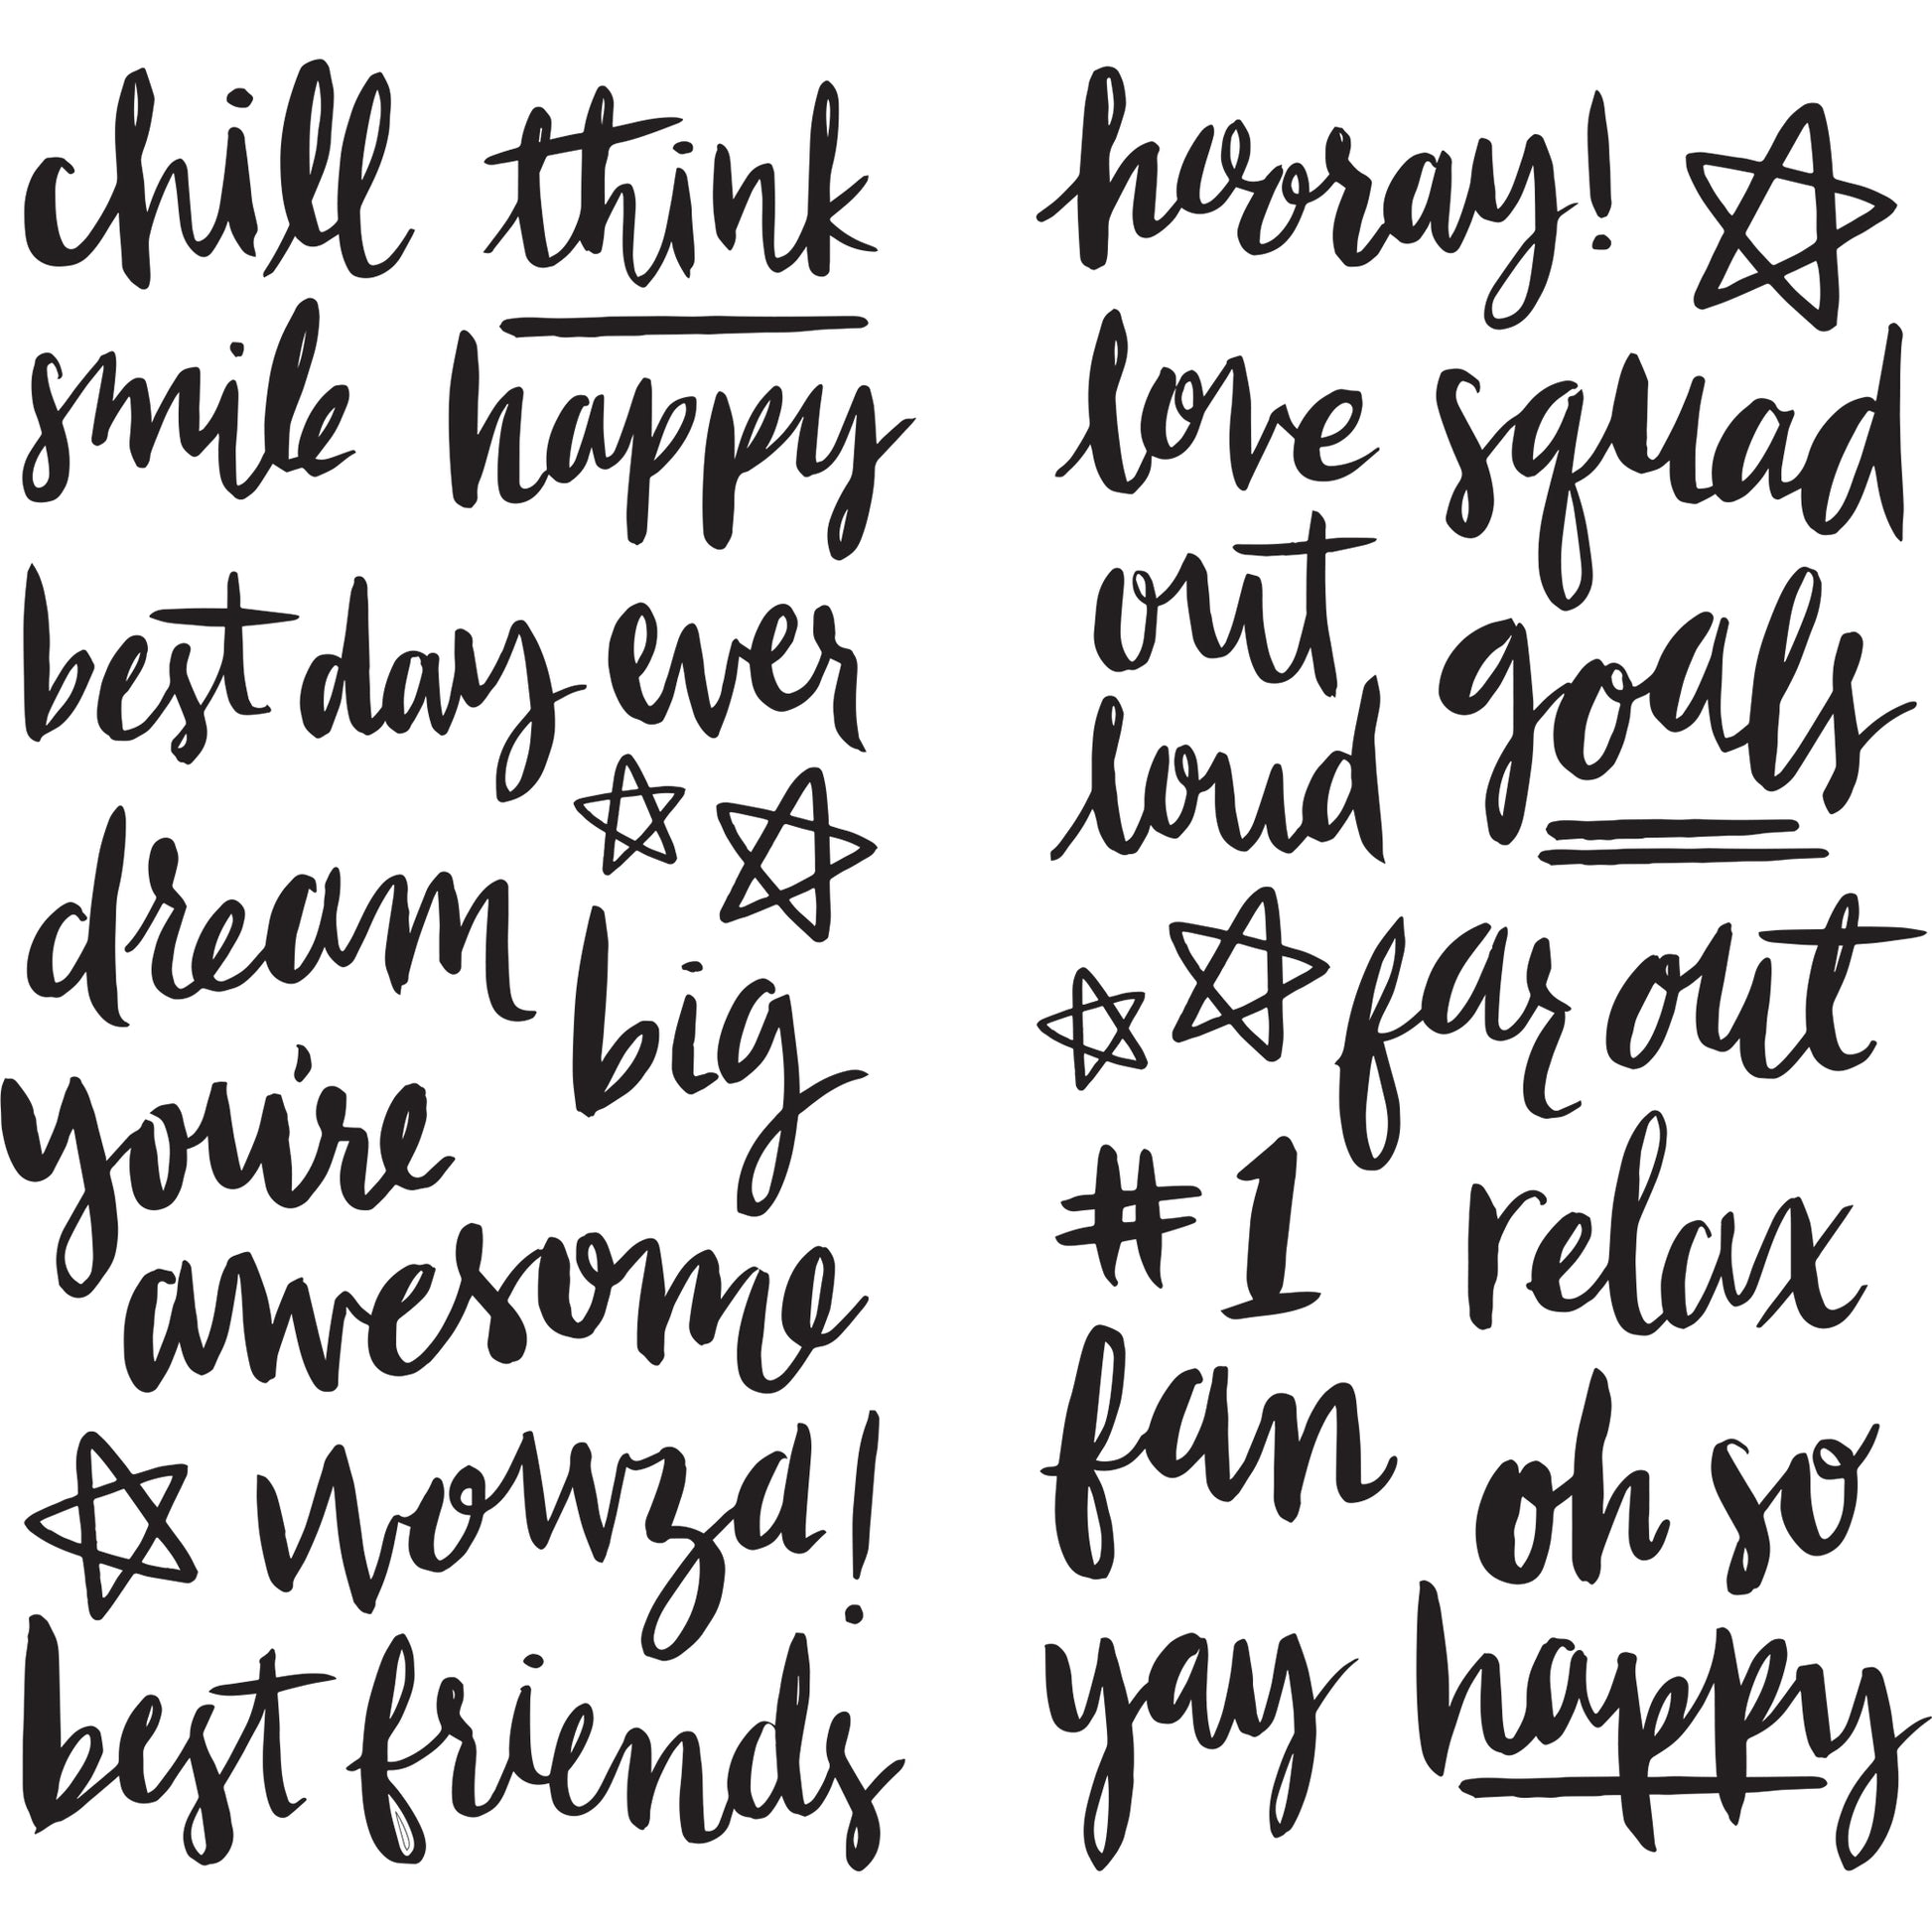 chill think
smile happy
best day ever
dream big
you're awesome
wowza!
best friends
horay!
love squad
out goals
loud
far out
#1 relax
fan oh so
yay happy